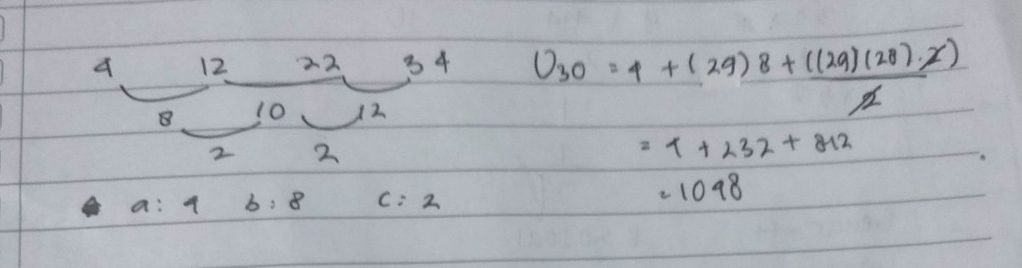 4 12 22 34
8 10 12
2 2
a: 4 b: 8 c: 2
U30 = 4 + (29) 8 + ((29)(28).2)
2
= 4 + 232 + 812
= 1048